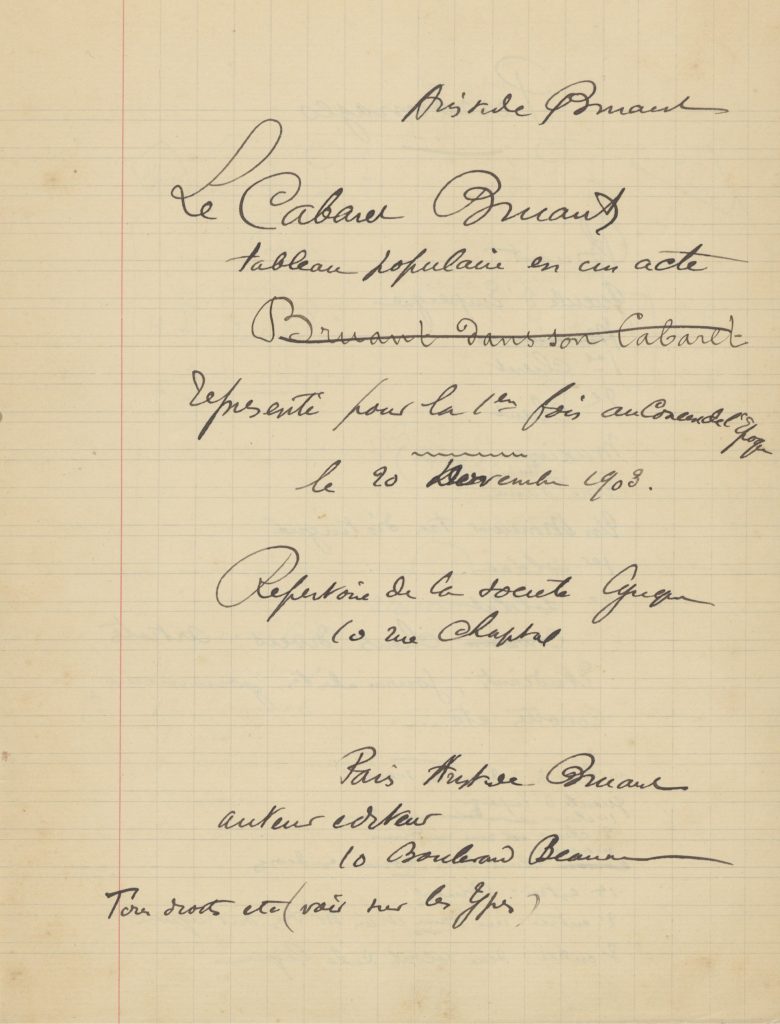 Aristide Bruant
Le Cabaret Bruant
tableau populaire en un acte
Bruant dans son Cabaret
représenté pour la 1ere fois au Concert de l'Epoque
le 20 Novembre 1903.
Repertoire de la societe lyrique
10 rue Chaptal
Paris Aristide Bruant
auteur editeur
10 Boulevard Beaum
Tous droits etc (voir sur les types)